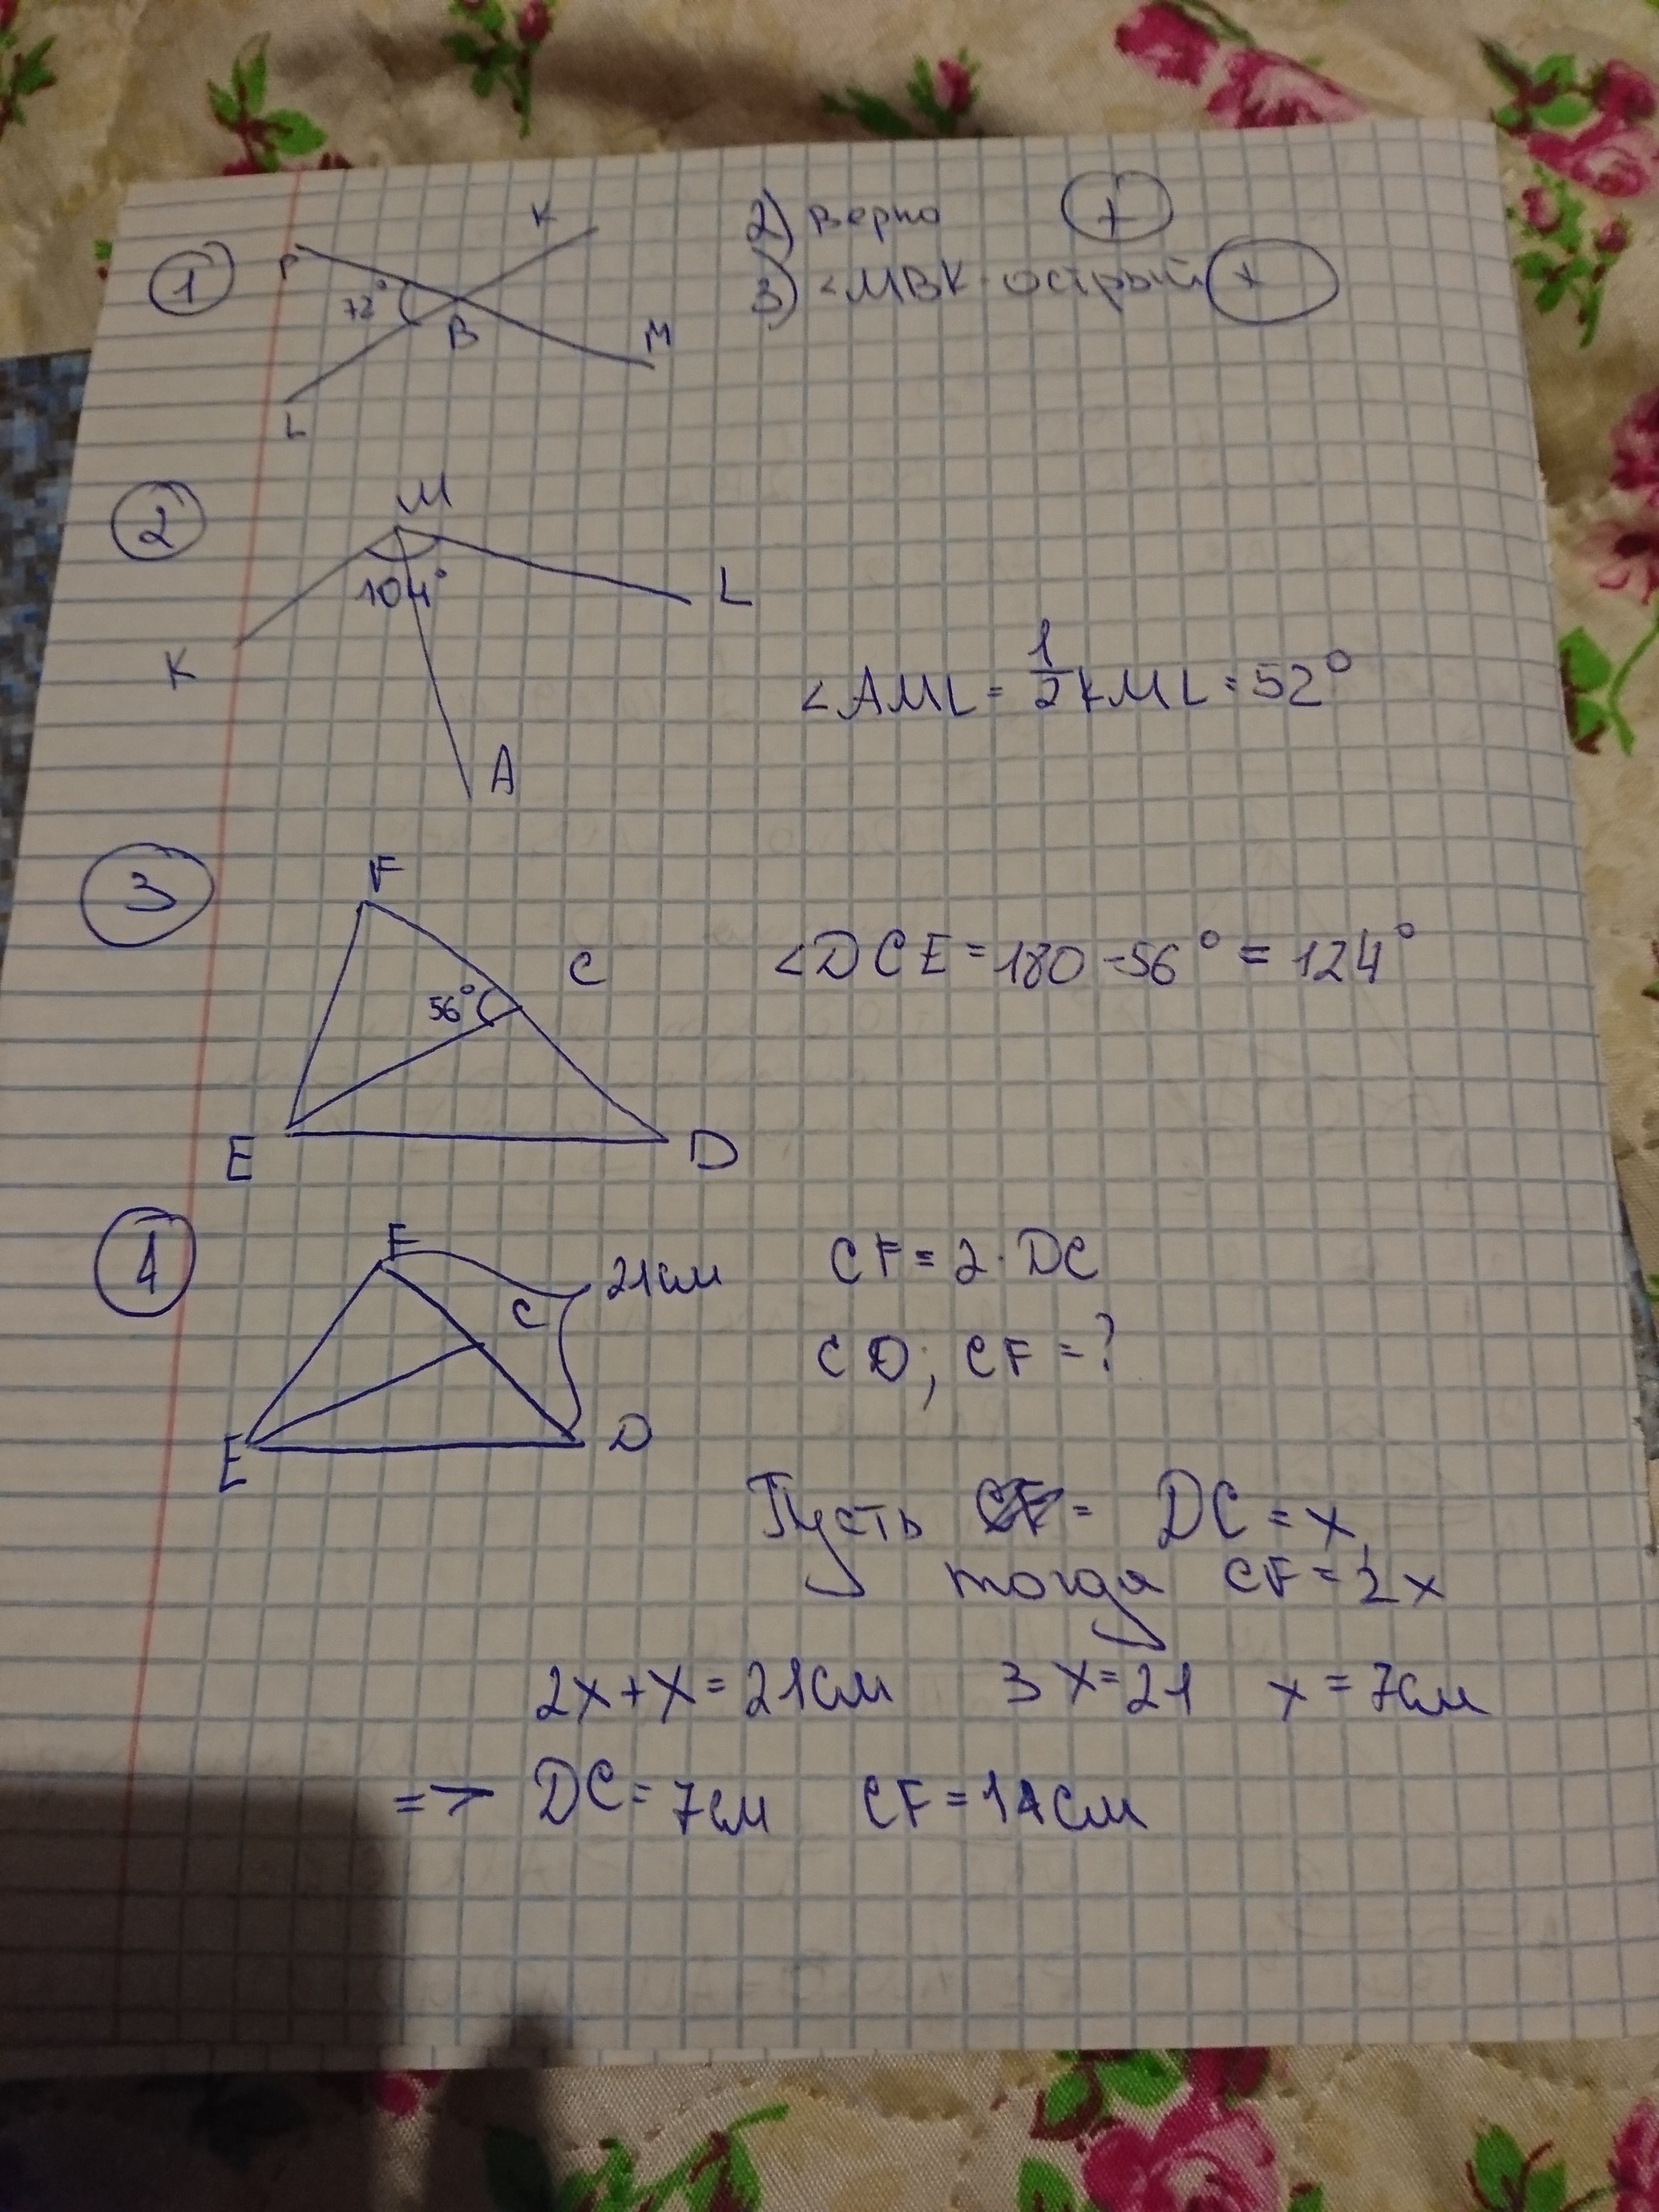 1
P
K
72°
B
M
L
2) верно +
3) <MBK - острый +
2
M
104°
K
L
A
<AML = 1/2 KML = 52°
3
F
C
56°
E
D
<DCE = 180 - 56° = 124°
4
F
21см
C
E
D
CF = 2 · DC
CD; CF = ?
Пусть DC = x,
тогда CF = 2x
2x + x = 21см 3x = 21 x = 7см
=> DC = 7см CF = 14см